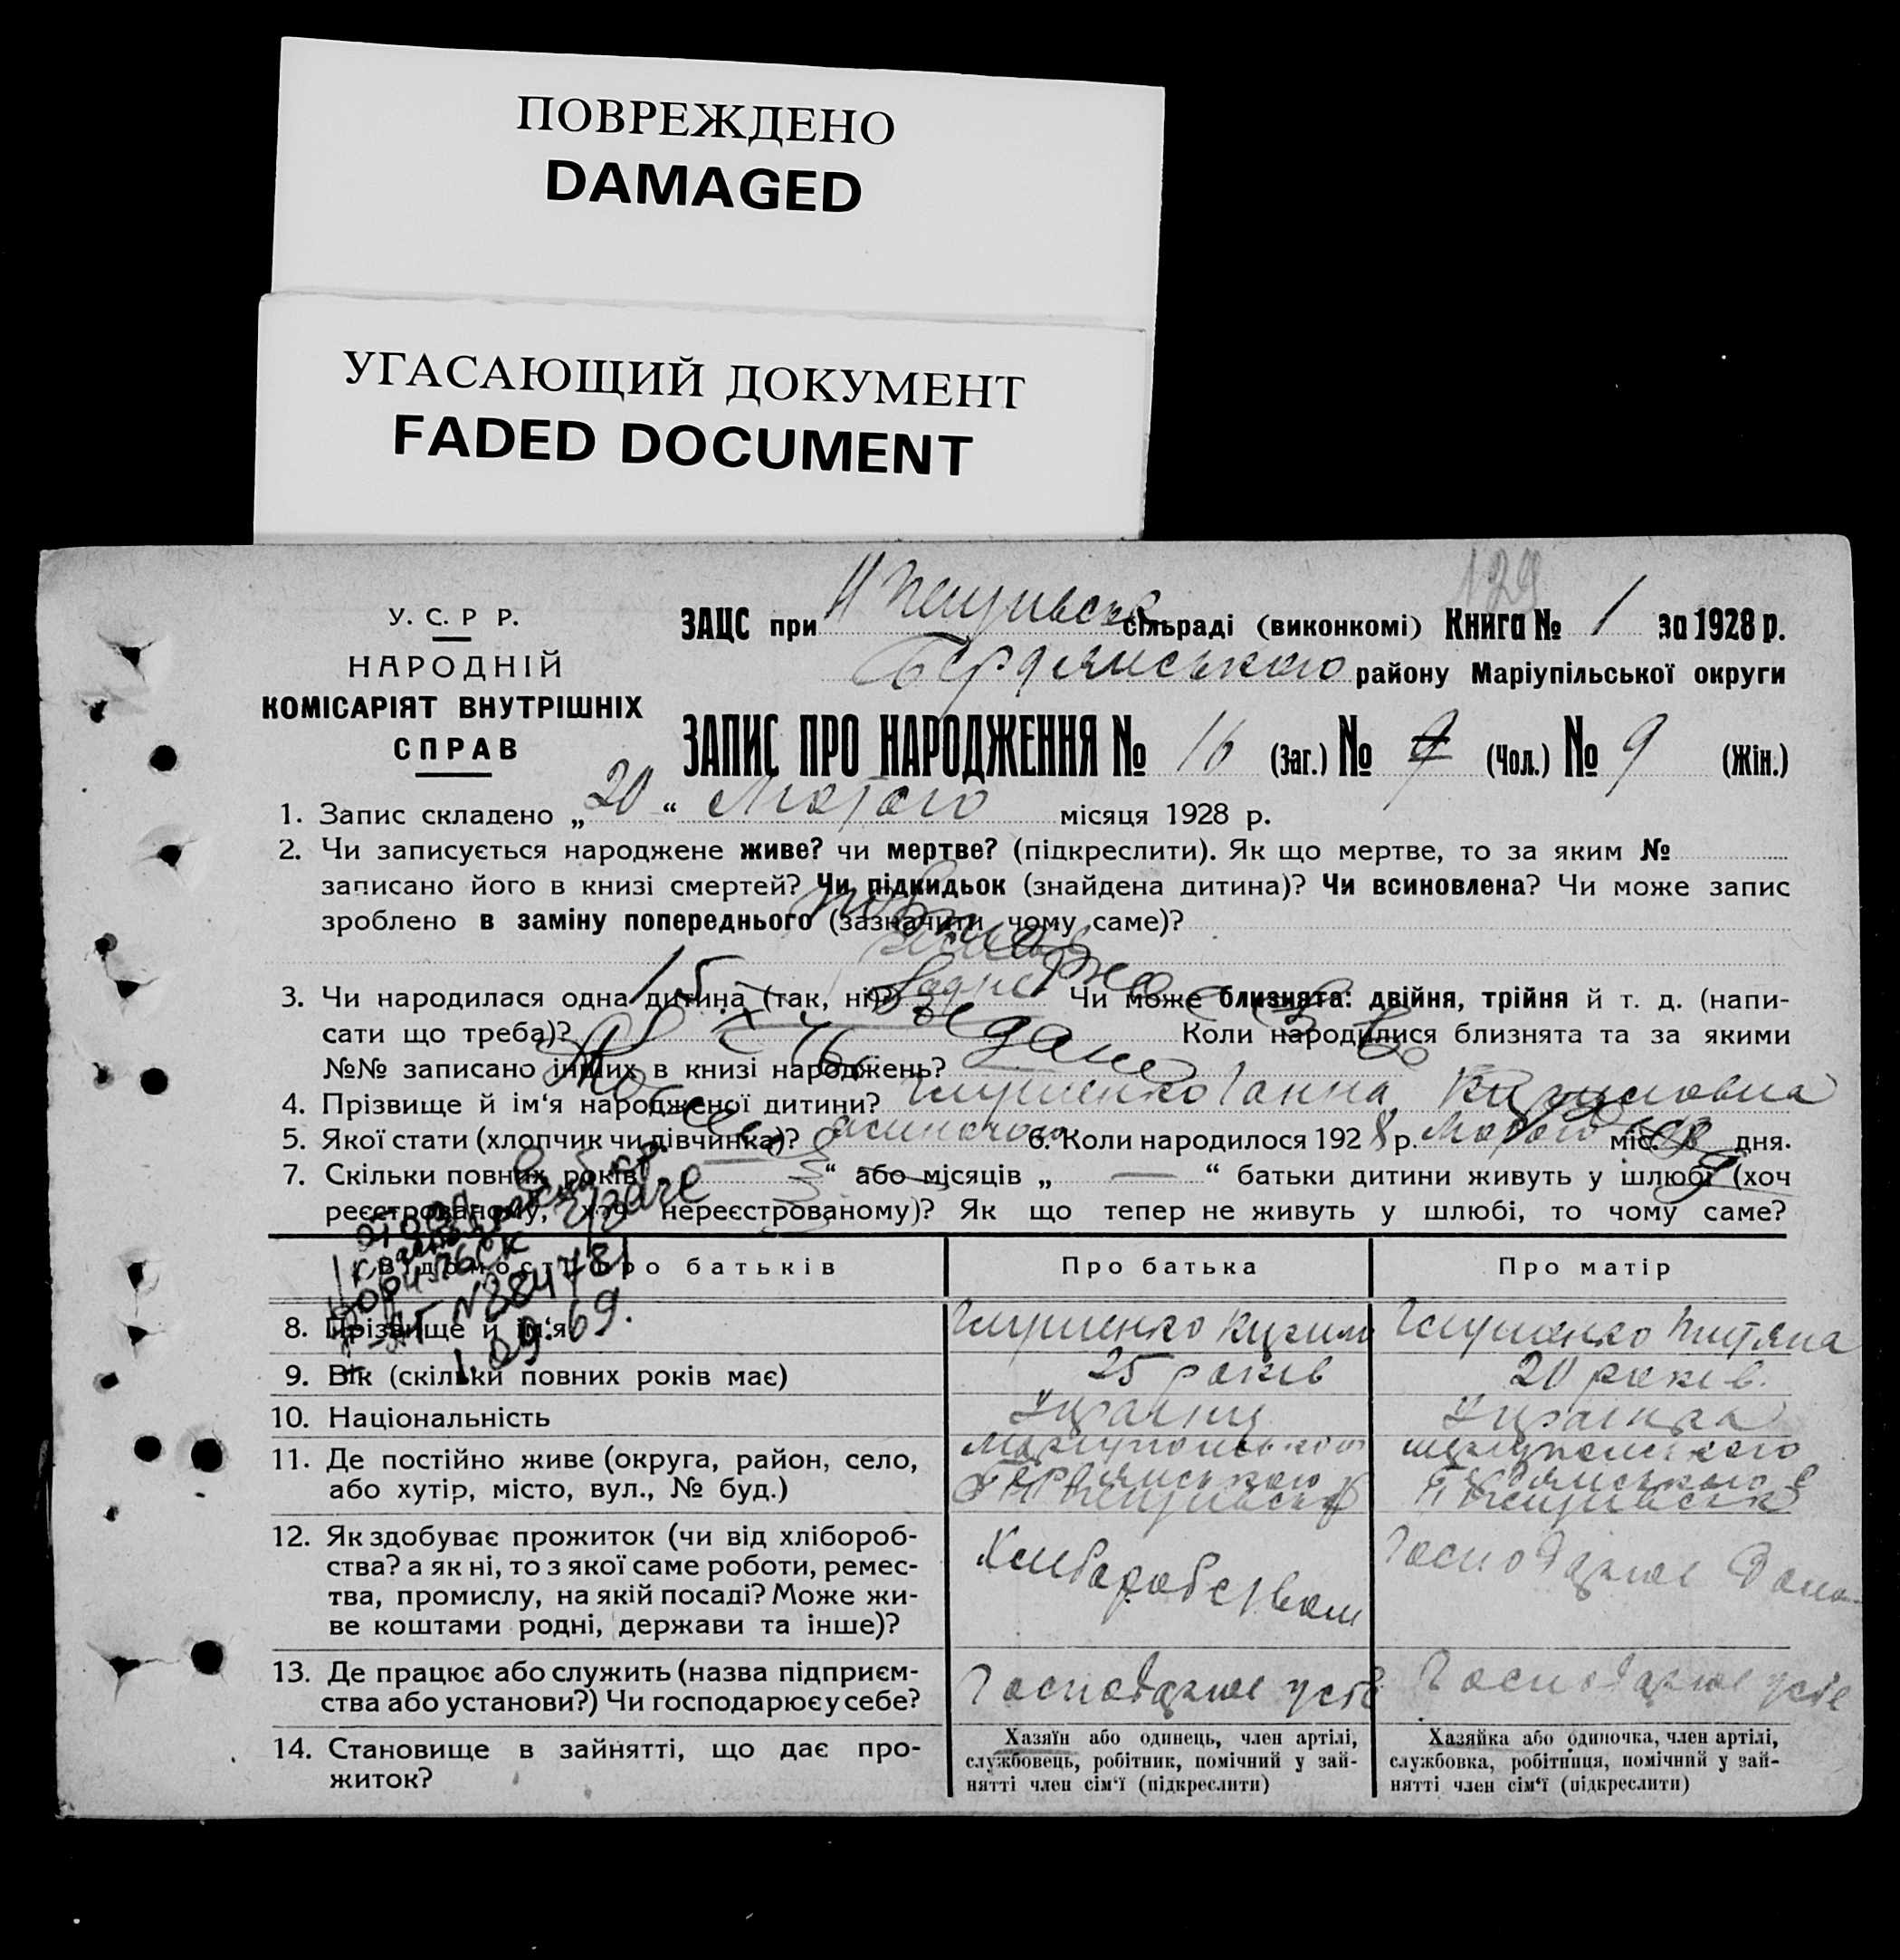 ПОВРЕЖДЕНО
DAMAGED
УГАСАЮЩИЙ ДОКУМЕНТ
FADED DOCUMENT
129
У. С. Р Р.
НАРОДНІЙ
КОМІСАРІЯТ ВНУТРІШНІХ
СПРАВ
ЗАЦС при сільраді (виконкомі) Книга № 1 за 1928 р.
Бердянського району Маріупільської округи
ЗАПИС ПРО НАРОДЖЕННЯ № 16 (Заг.) № (Чол.) № 9 (Жін.)
1. Запис складено „ 20 “ Лютого місяця 1928 р.
2. Чи записується народжене живе? чи мертве? (підкреслити). Як що мертве, то за яким №
записано його в книзі смертей? Чи підкидьок (знайдена дитина)? Чи всиновлена? Чи може запис
зроблено в заміну попереднього (зазначити чому саме)?
3. Чи народилася одна дитина (так, ні)? Чи може близнята: двійня, трійня й т. д. (напи-
сати що треба)? Коли народилися близнята та за якими
№№ записано інших в книзі народжень?
4. Прізвище й ім‘я народженої дитини? Глушенко Ганна
5. Якої стати (хлопчик чи дівчинка)? 6. Коли народилося 1928 р. Лютого міс. дня.
7. Скільки повних років “ або місяців „ — “ батьки дитини живуть у шлюбі (хоч
реєстрованому, хоч нереєстрованому)? Як що тепер не живуть у шлюбі, то чому саме?
Відомості про батьків
Про батька
Про матір
№ 884781
1.09.69.
8. Прізвище й ім‘я
Глушенко Кузим
Глушенко Титяна
9. Вік (скільки повних років має)
25 років
20 років.
10. Національність
Українц
Українка
11. Де постійно живе (округа, район, село,
або хутір, місто, вул., № буд.)
Маріупольского
Бердянського
Маріупольского
Бердянського
12. Як здобуває прожиток (чи від хлібороб-
ства? а як ні, то з якої саме роботи, ремес-
тва, промислу, на якій посаді? Може жи-
ве коштами родні, держави та інше)?
Хлібаробством
Господарює Дома
13. Де працює або служить (назва підприєм-
ства або установи?) Чи господарює у себе?
Господарює усебе
Господарює усебе
14. Становище в зайнятті, що дає про-
житок?
Хазяїн або одинець, член артілі,
службовець, робітник, помічний у зай-
нятті член сім‘ї (підкреслити)
Хазяйка або одиночка, член артілі,
службовка, робітниця, помічний у зай-
нятті член сім‘ї (підкреслити)